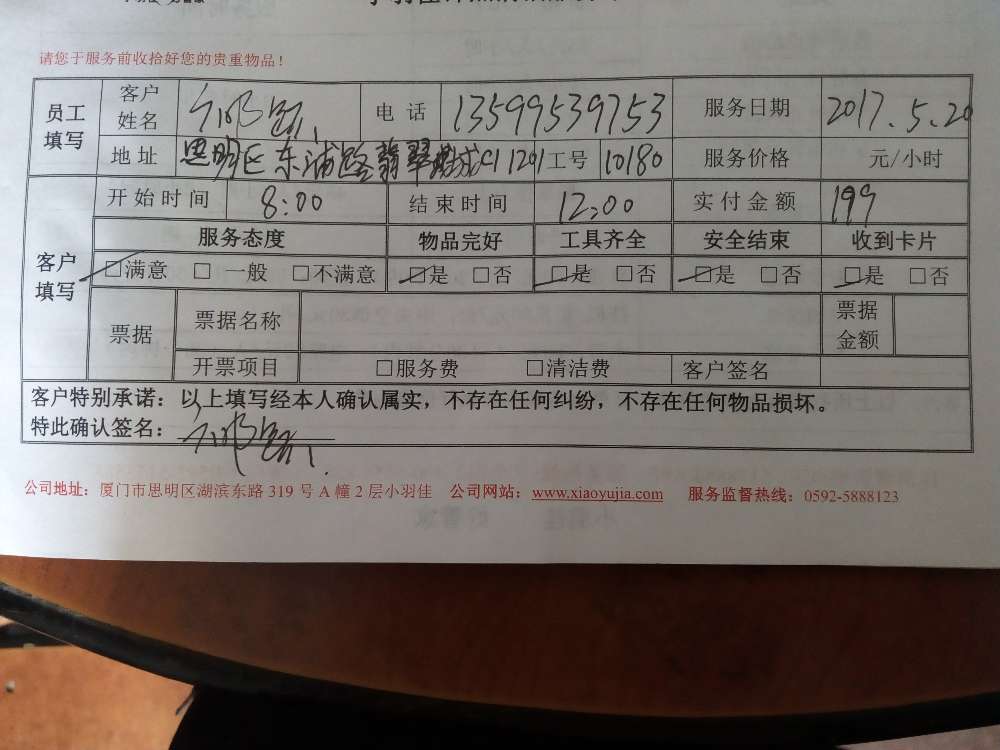 请您于服务前收拾好您的贵重物品！
员工填写 客户姓名 电话 13599539753 服务日期 2017.5.20
地址 思明区东浦路翡翠城C1 1201 工号 10180 服务价格 元/小时
客户填写 开始时间 8:00 结束时间 12:00 实付金额 199
服务态度 物品完好 工具齐全 安全结束 收到卡片
☑满意 □一般 □不满意 ☑是 □否 ☑是 □否 ☑是 □否 ☑是 □否
票据 票据名称 票据金额
开票项目 □服务费 □清洁费 客户签名
客户特别承诺：以上填写经本人确认属实，不存在任何纠纷，不存在任何物品损坏。
特此确认签名：
公司地址：厦门市思明区湖滨东路 319 号 A 幢 2 层小羽佳 公司网站：www.xiaoyujia.com 服务监督热线：0592-5888123